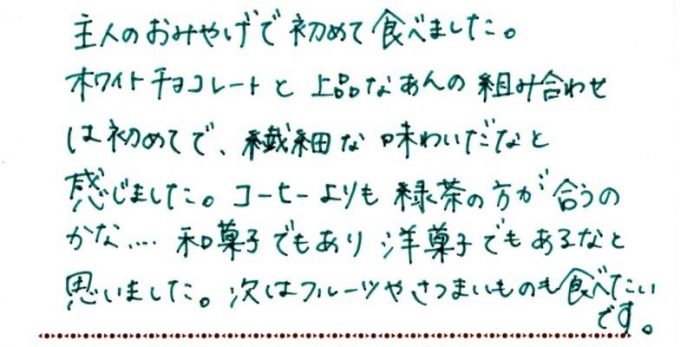 主人のおみやげで初めて食べました。
ホワイトチョコレートと上品なあんの組み合わせ
は初めてで、繊細な味わいだなと
感じました。コーヒーよりも緑茶の方が合うの
かな…. 和菓子でもあり洋菓子でもあるなと
思いました。次はフルーツやさつまいものも食べたい
です。